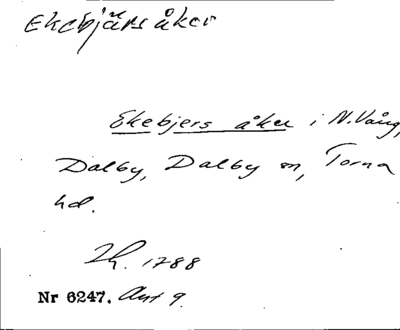 Ekebjärs åker
Ekebjers åker i N. Vång,
Dalby, Dalby sn, Torna
hd.
1788
Nr 6247. Akt 9.